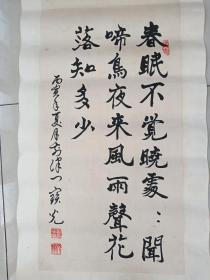 春眠不覺曉處〻聞
啼鳥夜来風雨聲花
落知多少
丙寅年夏月於津门寶光